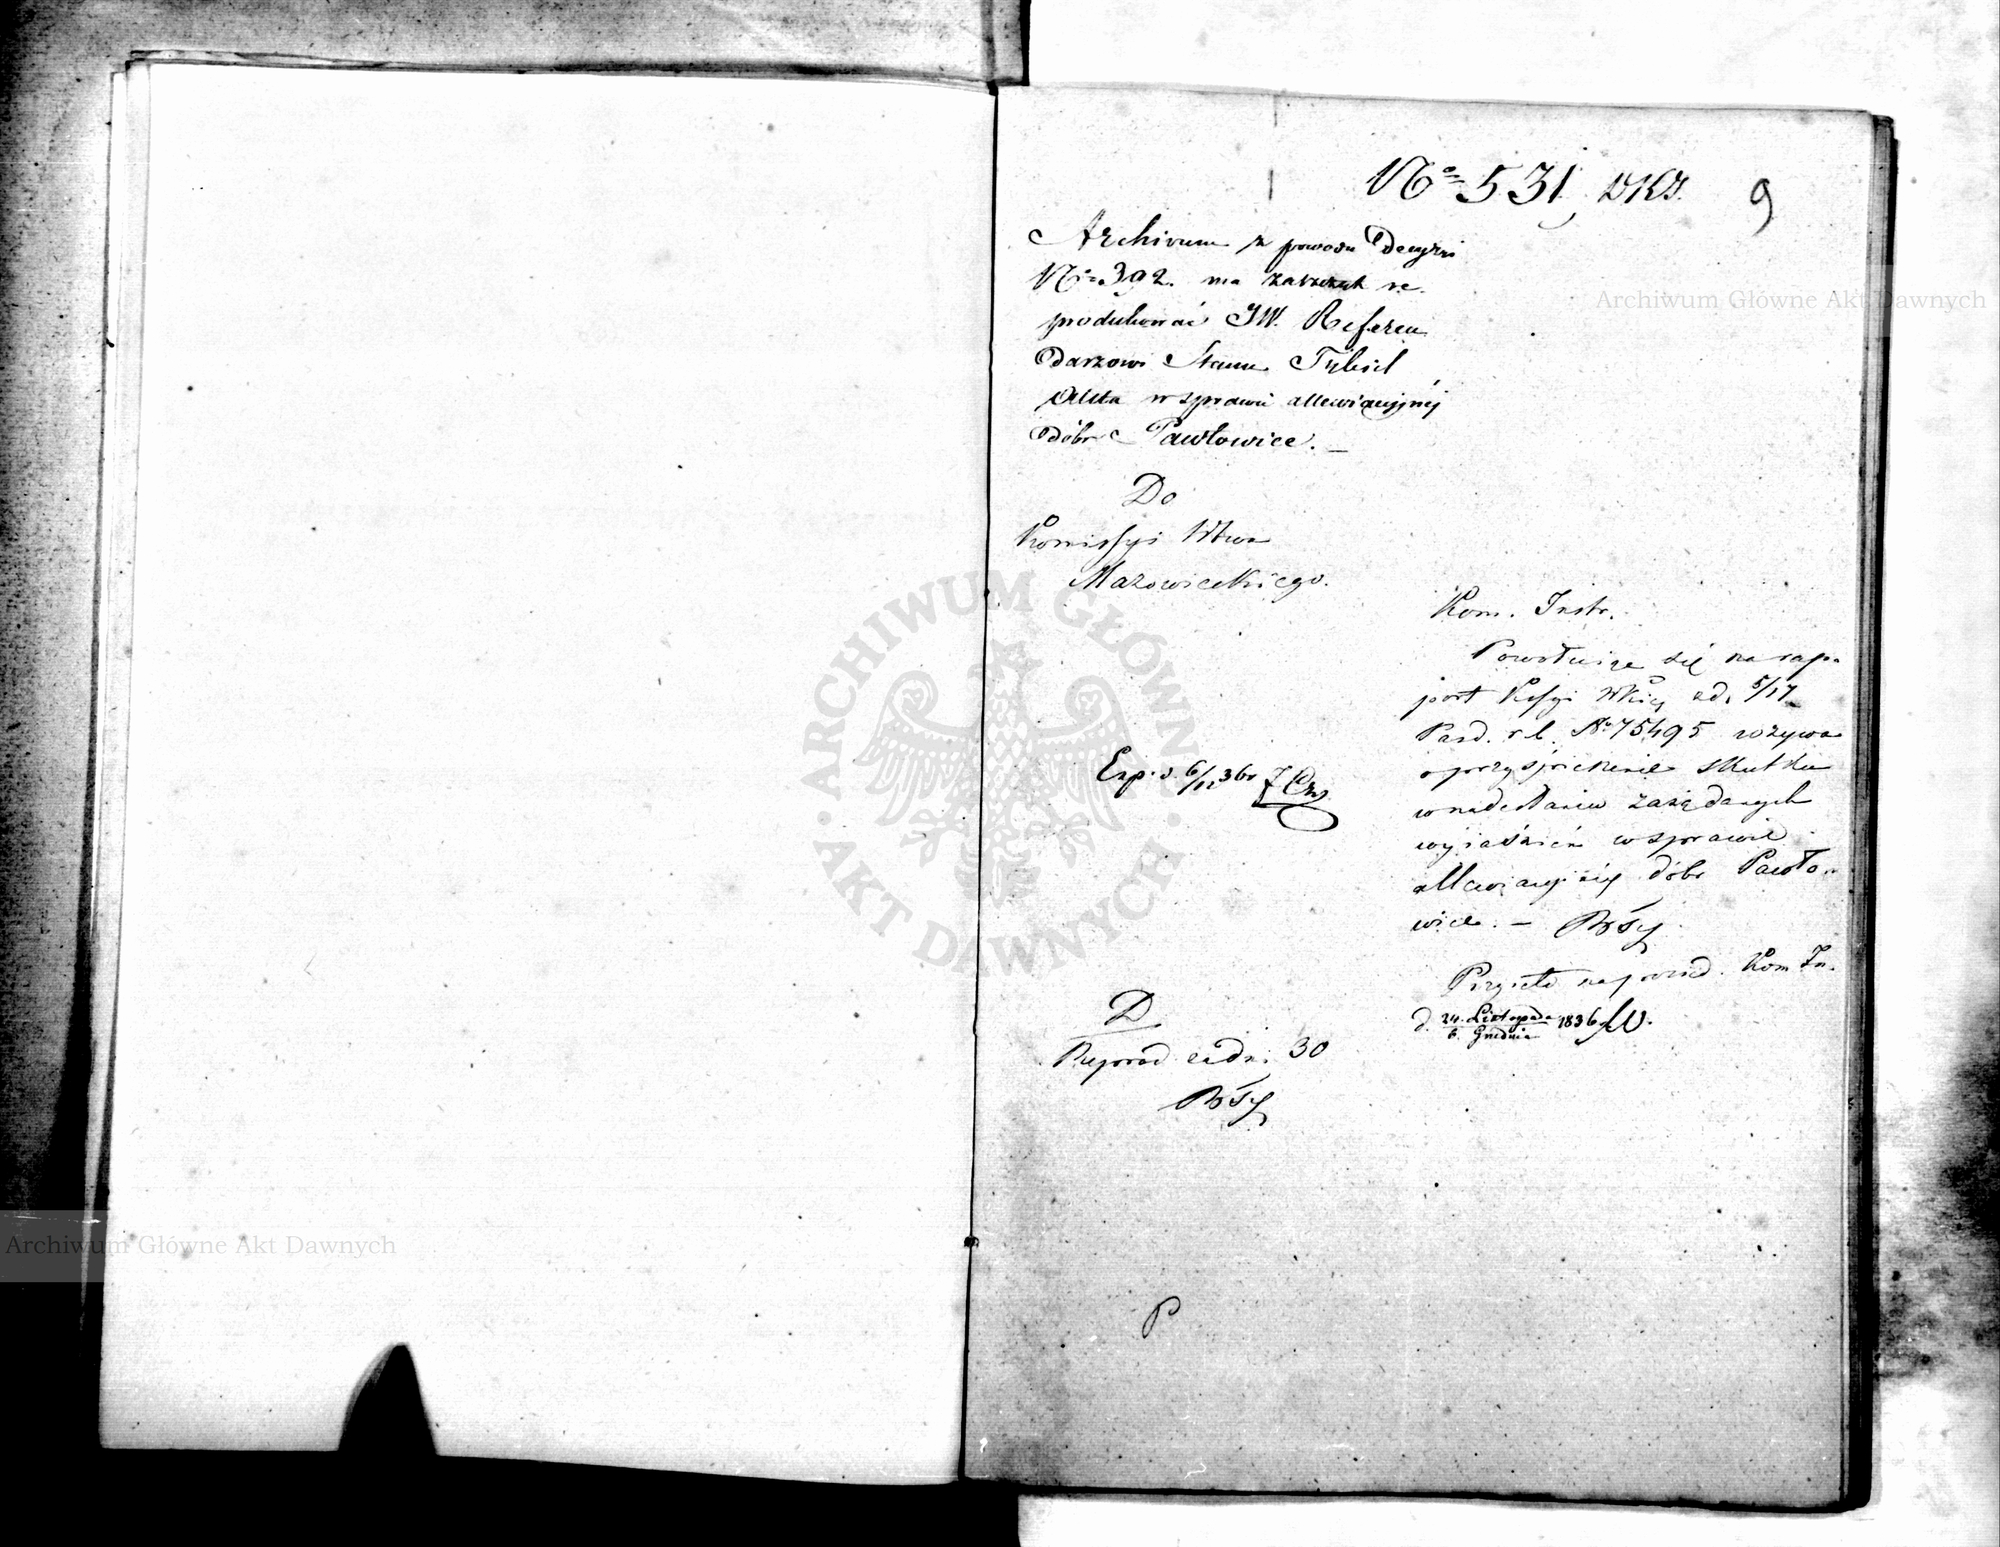 No 531 DKJ. 9
Archivum z powodu Decyzyi
No 392. ma zaszczyt re-
produkować JW. Referen
darzowi Stanu Tykiel
Akta w sprawie allewiacyjnéj
Dóbr Pawłowice. —
Do
Komissyi Wtwa
Mazowieckiego.
Kom. Instr.
Powołuiąc się na rap-
port Kssyi Wkiey z d. 5/17
Pazd. r. b. No 75495 wzywa
o przyspieszenie skutku
w nadesłaniu zażądanych
wyiaśnień w sprawie
allewiacyiney dóbr Pawło-
wice. —
Exp. d. 6/12 36
Przyięto na posied. Kom In.
d. 24. Listopada / 6. Grudnia 1836
D
Reprod. za dni 30
P
ARCHIWUM GŁÓWNE AKT DAWNYCH
Archiwum Główne Akt Dawnych
Archiwum Główne Akt Dawnych